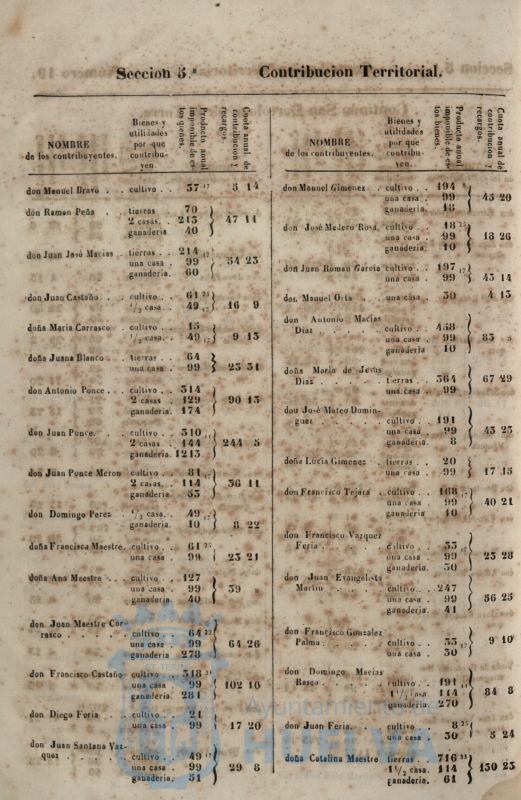 Seccion 5.ª Contribucion Territorial.
NOMBRE de los contribuyentes.
Bienes y utilidades por que contribuyen.
Producto anual imponible de estos bienes.
Cuota anual de contribucion y recargos.
don Manuel Bravo . . cultivo . . 57 17 5 14
don Ramon Peña . tierras . 70
2 casas. 213 47 11
ganaderia 40
don Juan José Macias . tierras . . 214 17
una casa . 99 54 23
ganaderia. 60
don Juan Castaño . . cultivo . . 61 25
1/2 casa. . 49 17 16 9
doña Maria Carrasco . cultivo . . 15
1/2 casa. . 49 17 9 13
doña Juana Blanco . . tierras . . 64
una casa . 99 25 31
don Antonio Ponce . . . cultivo . . 314
2 casas . 129 90 13
ganaderia. 174
don Juan Ponce. . . cultivo . . 310 17
2 casas . 144 244 5
ganaderia. 1213
don Juan Ponce Meron cultivo . . 81 17
2 casas. . 114 36 11
ganaderia. 55
don Domingo Perez . 1/2 casa. . 49 17
ganaderia. 10 8 22
doña Francisca Maestre. cultivo . . 61 25
una casa . 99 23 21
doña Ana Maestre . . . cultivo . . 127
una casa . 99 39 »
ganaderia. 40
don Juan Maestre Carrasco
. . . . . cultivo . . 64 22
una casa . 99 64 26
ganaderia 278
don Francisco Castaño cultivo . . 318 21
una casa . 99 102 10
ganaderia. 281
don Diego Feria . . cultivo . . 21
una casa . 99 17 20
don Juan Santana Vazquez
. . . . cultivo . . 49 17
una casa . 99 29 8
ganaderia. 51
NOMBRE de los contribuyentes.
Bienes y utilidades por que contribuyen.
Producto anual imponible de estos bienes.
Cuota anual de contribucion y recargos.
don Manuel Gimenez . cultivo . . 194
una casa . 99 45 20
ganaderia. 18
don José Medero Rosa. cultivo . . 18 25
una casa . 99 18 26
ganaderia. 10
don Juan Roman Garcia cultivo . . 197 17
una casa . 99 43 14
don Manuel Orta . . una casa . 30 4 13
don Antonio Macias
Diaz . . . . . cultivo . . 458
una casa . 99 83 »
ganaderia 10
doña Maria de Jesus
Diaz . . . . . tierras . . 364 67 29
una casa . 99
don José Mateo Dominguez
. . . . cultivo . . 191
una casa . 99 43 23
ganaderia. 8
doña Lucia Gimenez . tierras . . 20
una casa . 99 17 15
don Francisco Tejara . cultivo . . 168 17
una casa . 99 40 21
ganaderia 10
don Francisco Vazquez
Feria . . . . . cultivo . . 33 17
una casa . 99 23 28
ganaderia. 30
don Juan Evangelista
Martin . . . . cultivo . . 247
una casa . 99 56 25
ganaderia. 41
don Francisco Gonzalez
Palma. . . . . cultivo . . 33 17
una casa . 30 9 10
don Domingo Macias
Rasco . . . . . cultivo . . 191 17
1 1/2 casa. 114 84 8
ganaderia. 270
don Juan Feria. . . cultivo . . 8 25
una casa . 30 5 24
doña Catalina Maestre tierras . . 716 33
1 1/2 casa. 114 130 25
ganaderia. 61
Ayuntamiento de
HUELVA